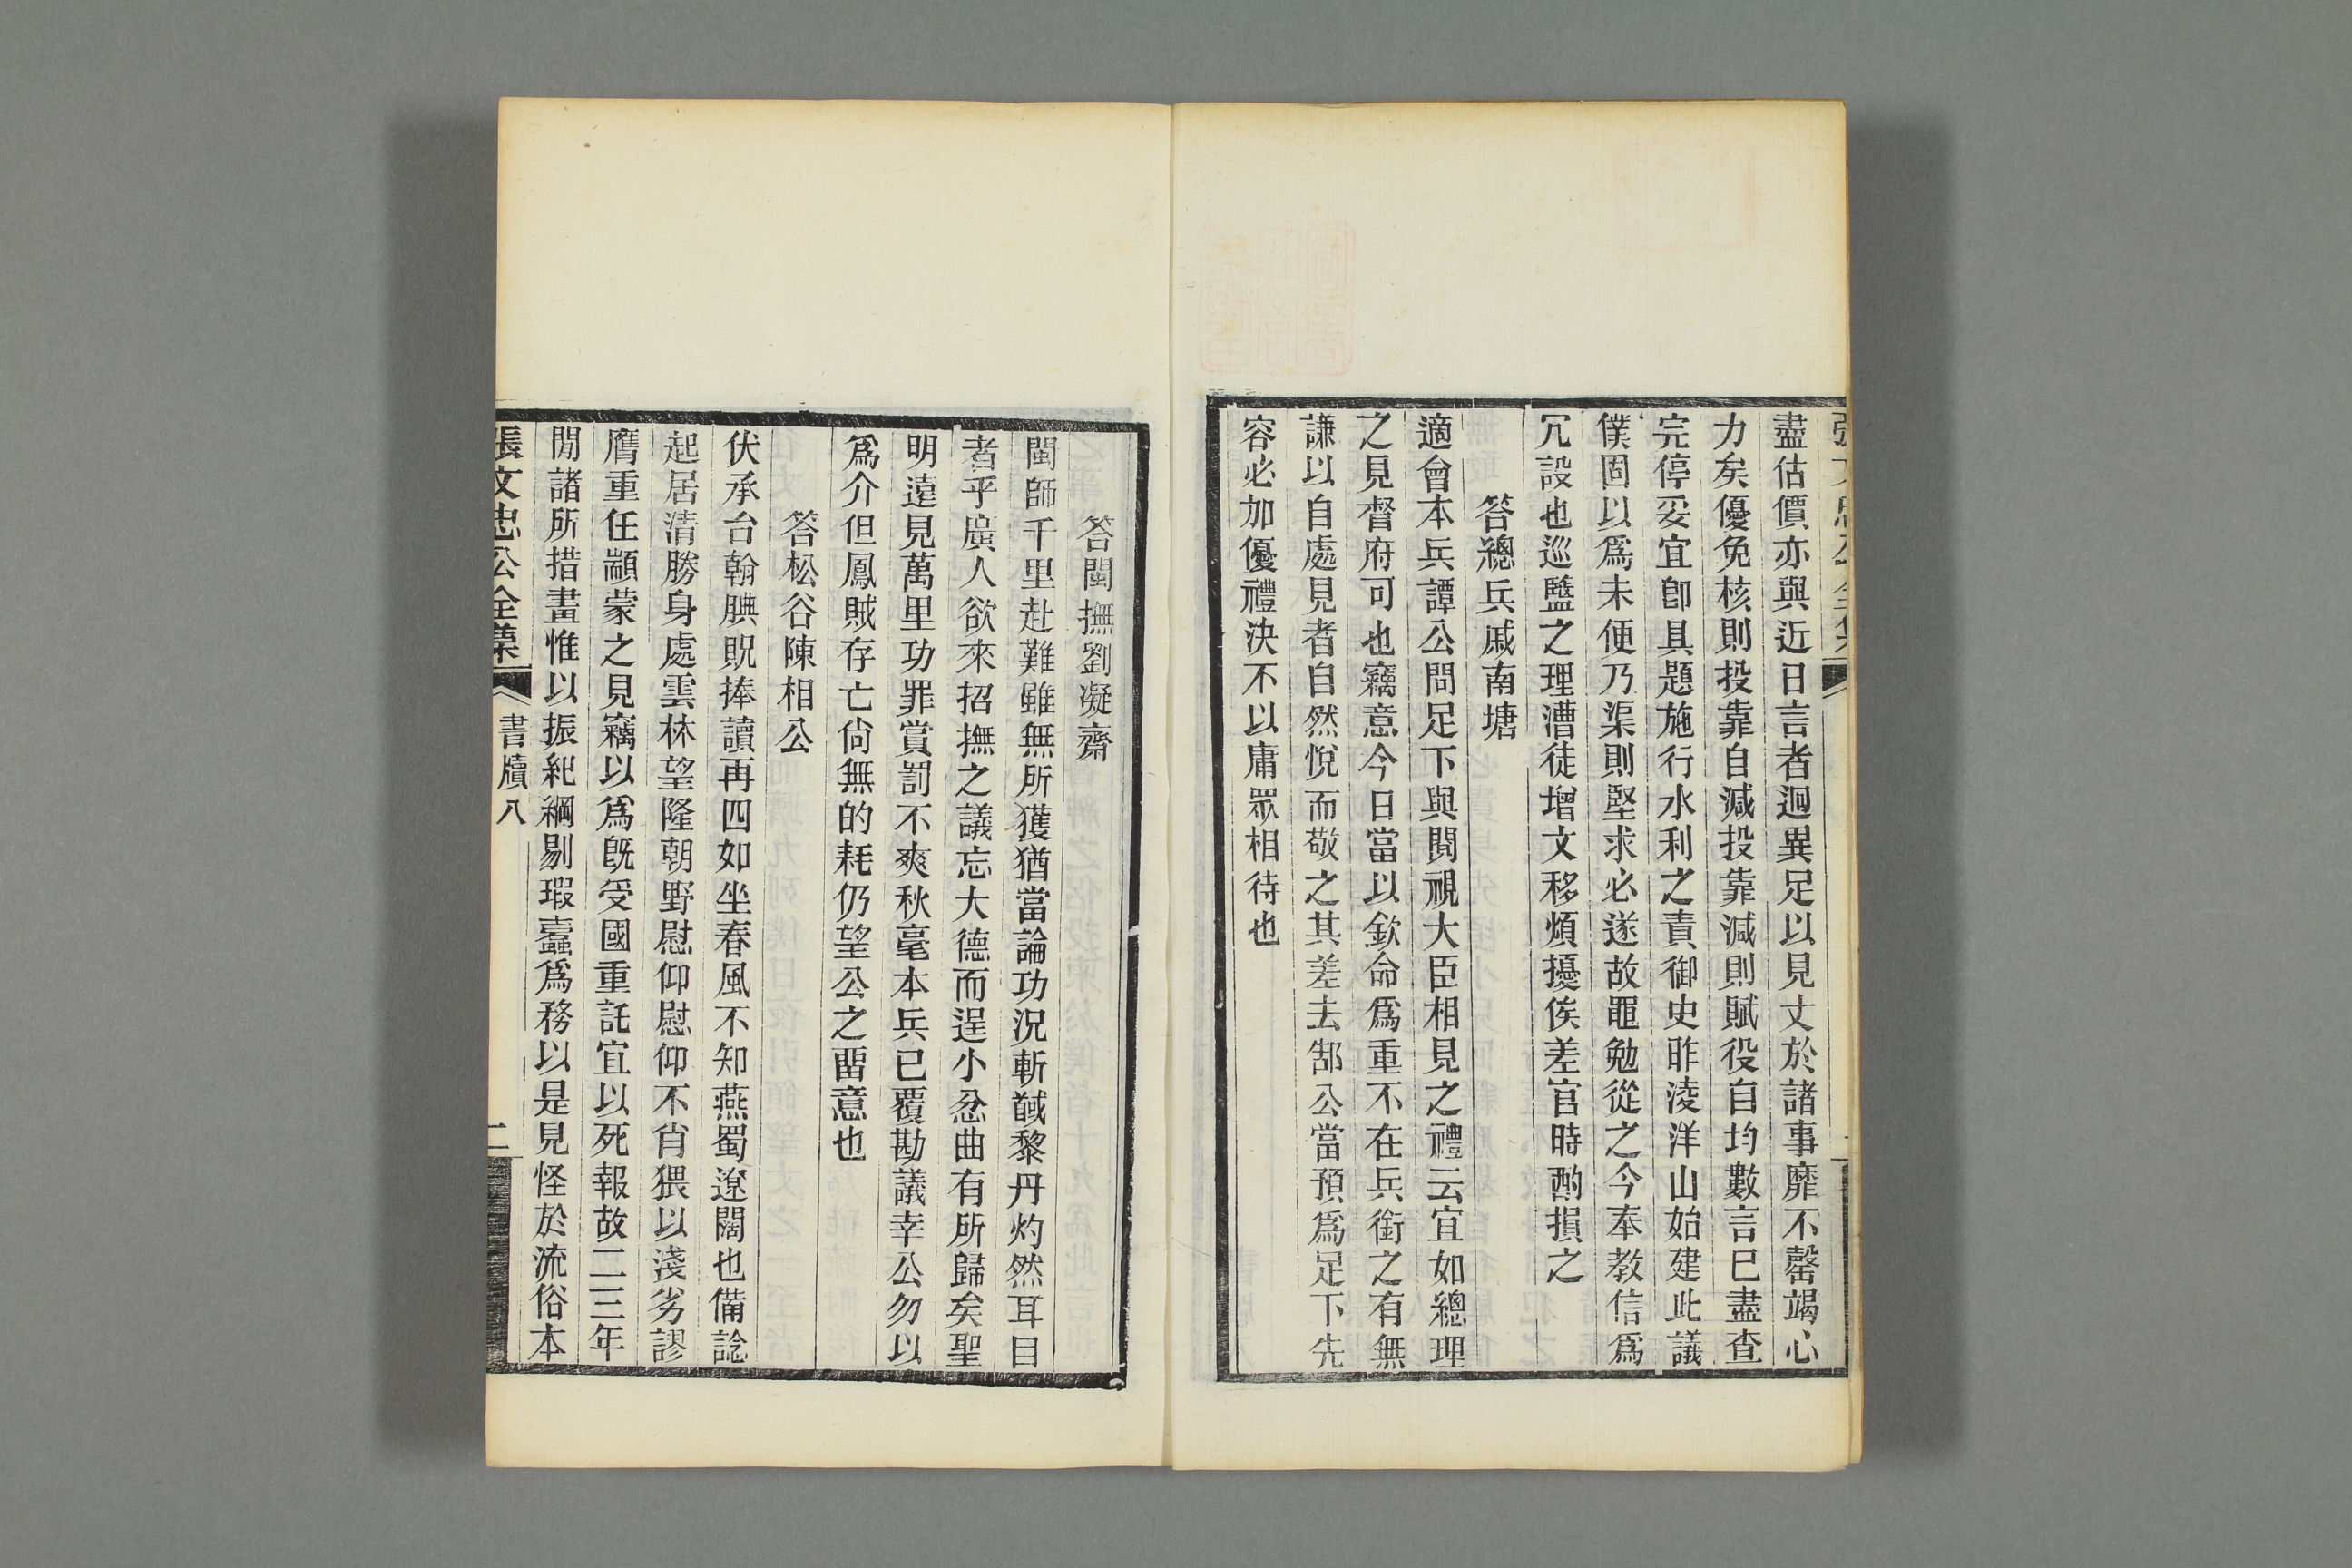 盡估價亦與近日言者迥異足以見丈於諸事靡不罄竭心
力矣優免核則投靠自減投靠減則賦役自均數言巳盡查
完停妥宜卽具題施行水利之責御史昨淩洋山始建此議
僕固以爲未便乃渠則堅求必遂故黽勉從之今奉教信爲
冗設也巡鹽之理漕徒增文移煩擾俟差官時酌損之
答總兵戚南塘
適會本兵譚公問足下與閱視大臣相見之禮云宜如總理
之見督府可也竊意今日當以欽命爲重不在兵銜之有無
謙以自處見者自然悅而敬之其差去郜公當預爲足下先
容必加優禮決不以庸眾相待也
答閩撫劉凝齋
閩師千里赴難雖無所獲猶當論功況斬馘黎丹灼然耳目
者乎廣人欲來招撫之議忘大德而逞小忿曲有所歸矣聖
明遠見萬里功罪賞罰不爽秋毫本兵已覆勘議幸公勿以
爲介但鳳賊存亡尙無的耗仍望公之畱意也
答松谷陳相公
伏承台翰腆貺捧讀再四如坐春風不知燕蜀遼闊也備諗
起居清勝身處雲林望隆朝野慰仰慰仰不肖猥以淺劣謬
膺重任顓蒙之見竊以爲旣受國重託宜以死報故二三年
閒諸所措畫惟以振紀綱剔瑕蠹爲務以是見怪於流俗本
張文忠公全集 書牘八 二